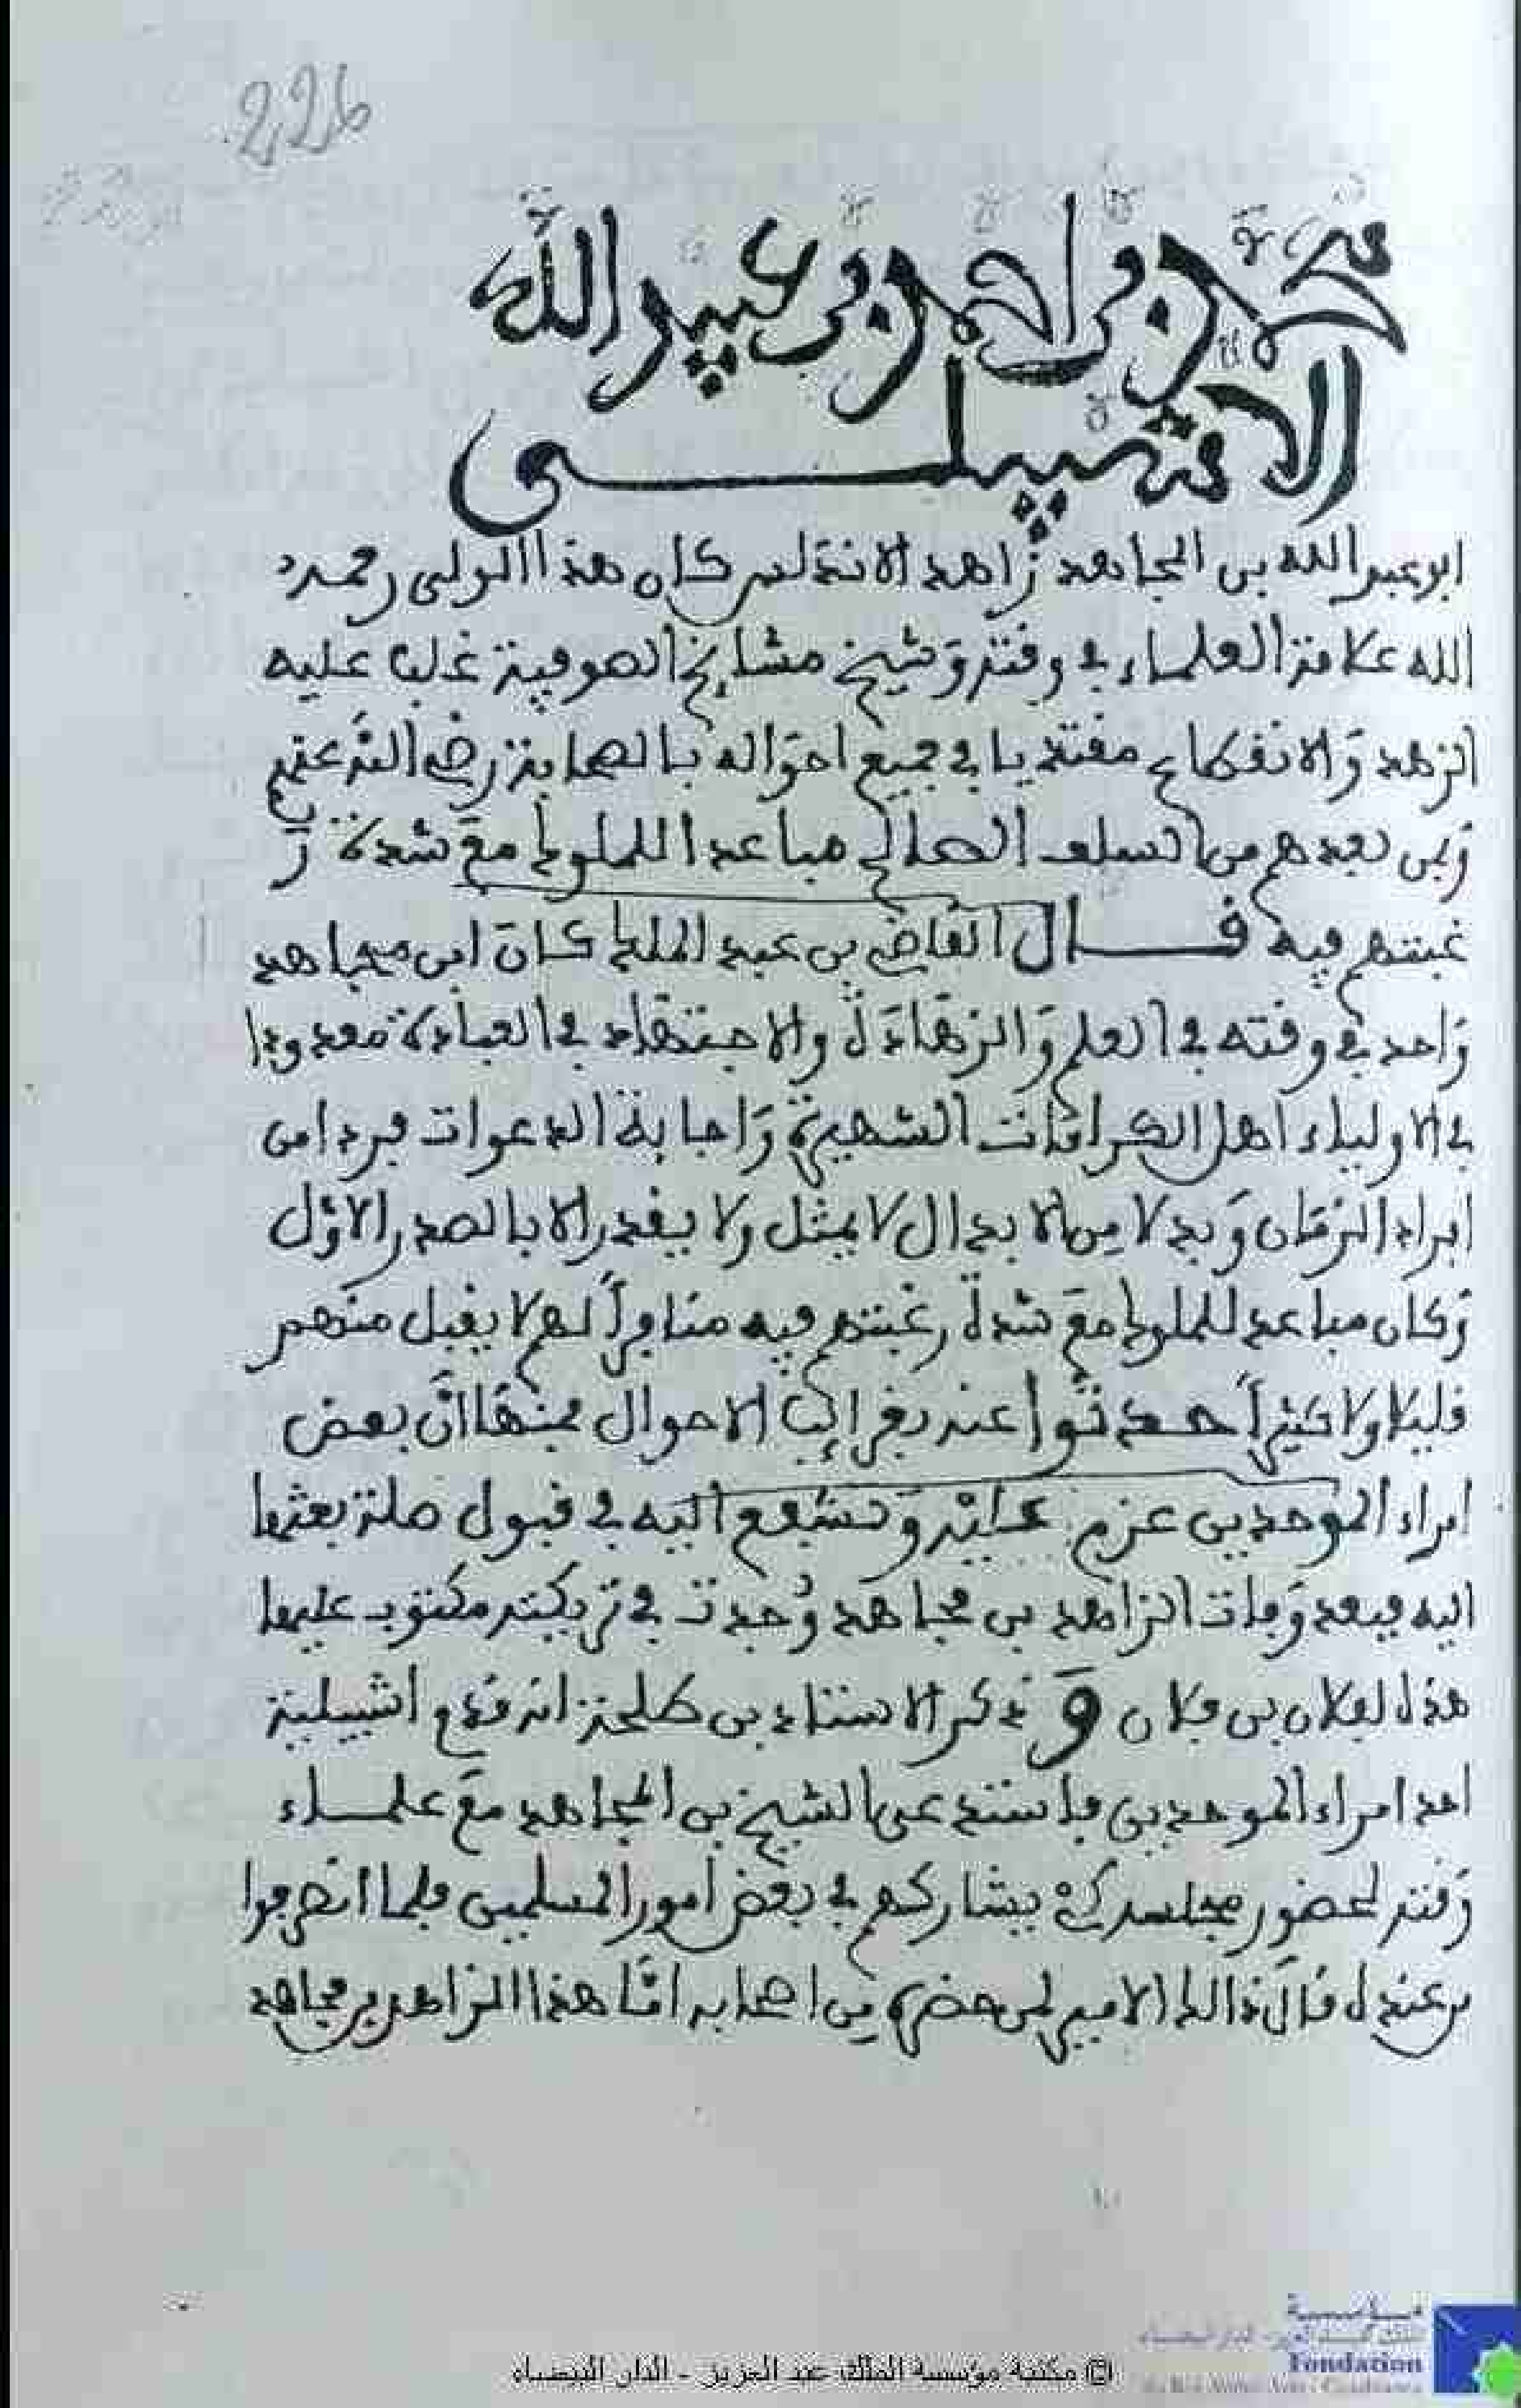 226
محمد بن احمد بن عبيد الله
الاشبيلي
ابو عبد الله بن المجاهد زاهد الاندلس كان هذا الولي رحمه
الله علامة العلماء في وقته وشيخ مشايخ الصوفية غلب عليه
الزهد والانقطاع مقتديا في جميع احواله بالصحابة رضي الله عنهم
وبمن بعدهم من السلف الصالح مباعدا للملوك مع شدة ر
غبتهم فيه قال القاضي بن عبد الملك كان ابن مجاهد
واحد في وقته في العلم والزهادة والاجتهاد في العبادة معدودا
في الاولياء اهل الكرامات الشهيرة واجابة الدعوات فردا من
افراد الزمان وبدلا من الابدال لا يمثل ولا يقدر الا بالصدر الاول
وكان مباعد للملوك مع شدة رغبتهم فيه منافرا لهم لا يقبل منهم
قليلا ولا كثيرا حدثوا عنه بغرائب الاحوال فمنها ان بعض
امراء الموحدين عزم عليه وتشفع اليه في قبول صلة بعثها
اليه فبعد وفات الزاهد بن مجاهد وجدت في تركته مكتوب عليها
هذه لفلان بن فلان و ذكر الاستاذ بن طلحة انه قدم اشبيلية
احد امراء الموحدين فاستدعى الشيخ بن المجاهد مع علماء
وقته لحضور مجلسه كي يشاركهم في بعض امور المسلمين فلما انصرفوا
من عنده قال ذالك الامير لمن حضره من اصحابه اما هذا الزاهد بن مجاهد
مؤسسة
Fondation
© مكتبة مؤسسة الملك عبد العزيز - الدار البيضاء